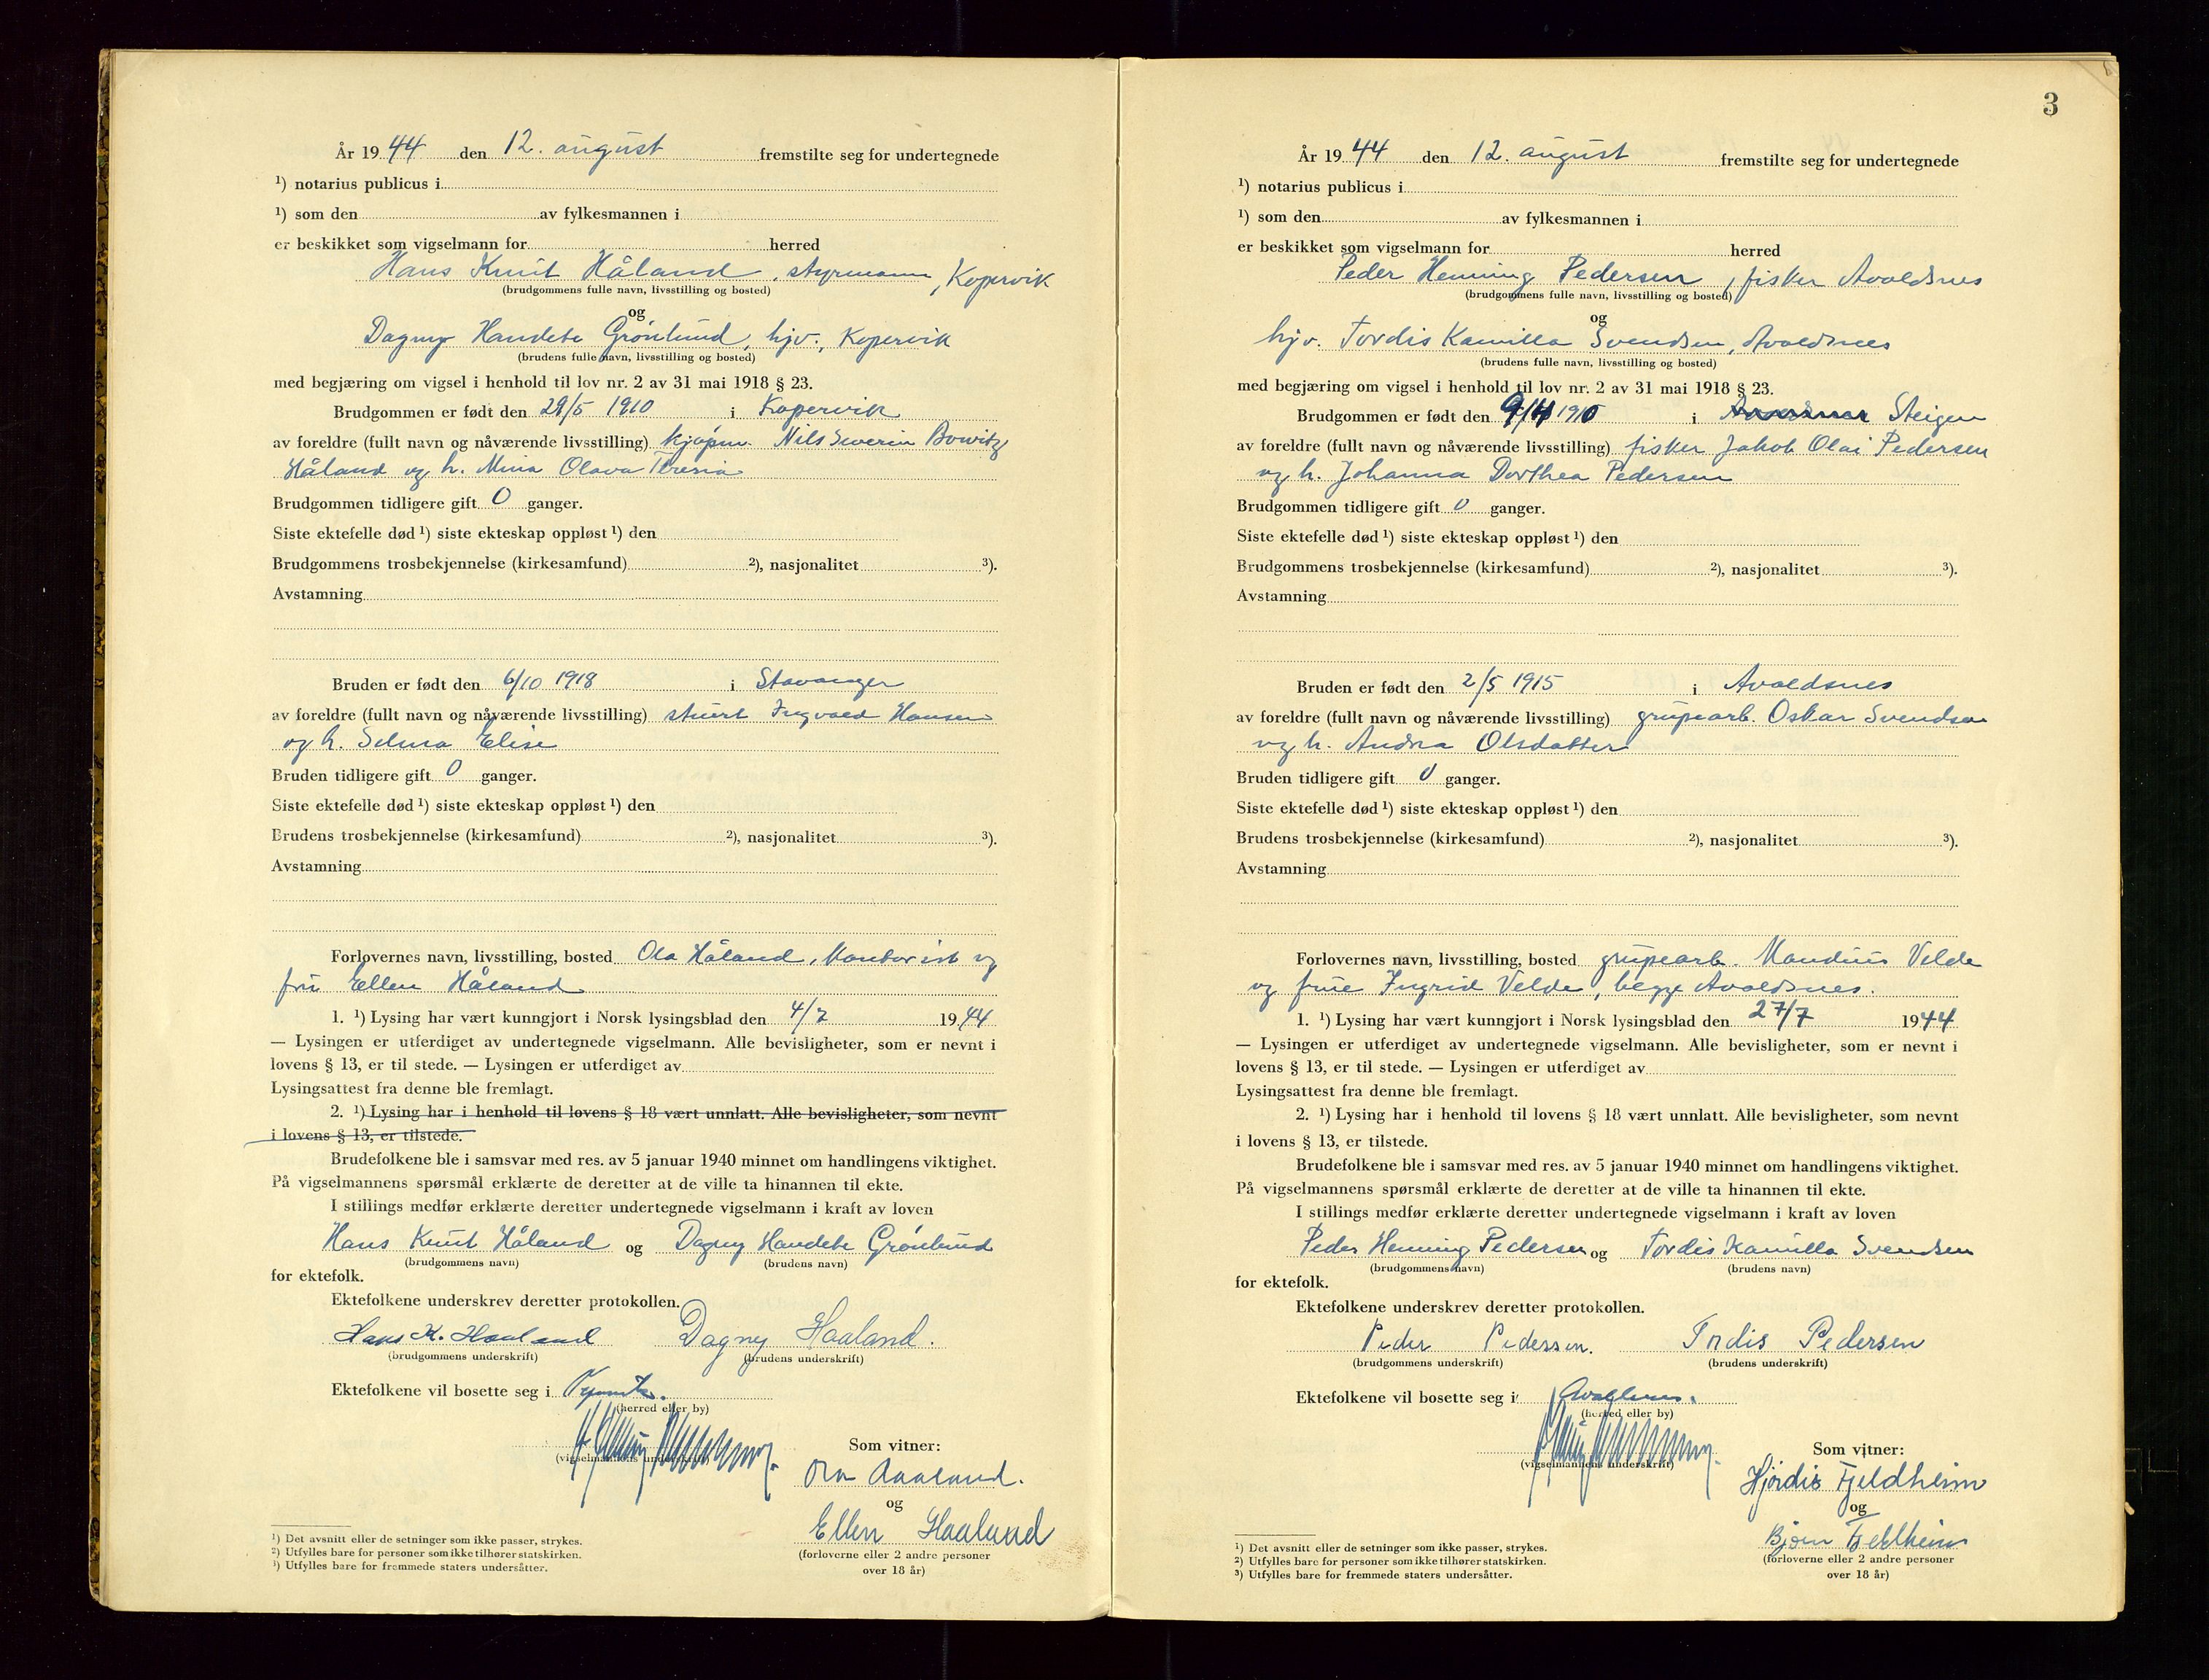 År 19 44 den 12. august fremstilte seg for undertegnede
¹) notarius publicus i
¹) som den av fylkesmannen i
er beskikket som vigselmann for herred
Hans Knut Håland, styrmann, Kopervik
(brudgommens fulle navn, livsstilling og bosted)
og
Dagny Handete Grønlund, hjv., Kopervik
(brudens fulle navn, livsstilling og bosted)
med begjæring om vigsel i henhold til lov nr. 2 av 31 mai 1918 § 23.
Brudgommen er født den 29/5 1910 i Kopervik
av foreldre (fullt navn og nåværende livsstilling) kjøpm. Nils Severin Bowitz
Håland og h. Mina Olava Teresia
Brudgommen tidligere gift 0 ganger.
Siste ektefelle død ¹) siste ekteskap oppløst ¹) den
Brudgommens trosbekjennelse (kirkesamfund) ²), nasjonalitet ³).
Avstamning
Bruden er født den 6/10 1918 i Stavanger
av foreldre (fullt navn og nåværende livsstilling) stuert Ingvald Hansen
og h. Selma Elise
Bruden tidligere gift 0 ganger.
Siste ektefelle død ¹) siste ekteskap oppløst ¹) den
Brudens trosbekjennelse (kirkesamfund) ²), nasjonalitet ³).
Avstamning
Forlovernes navn, livsstilling, bosted Ola Håland, kontorist og
fru Ellen Håland
1. ¹) Lysing har vært kunngjort i Norsk lysingsblad den 4/7 19 44
— Lysingen er utferdiget av undertegnede vigselmann. Alle bevisligheter, som er nevnt i
lovens § 13, er til stede. — Lysingen er utferdiget av
Lysingsattest fra denne ble fremlagt.
2. ¹) Lysing har i henhold til lovens § 18 vært unnlatt. Alle bevisligheter, som nevnt
i lovens § 13, er tilstede.
Brudefolkene ble i samsvar med res. av 5 januar 1940 minnet om handlingens viktighet.
På vigselmannens spørsmål erklærte de deretter at de ville ta hinannen til ekte.
I stillings medfør erklærte deretter undertegnede vigselmann i kraft av loven
Hans Knut Håland og Dagny Handete Grønlund
(brudgommens navn) (brudens navn)
for ektefolk.
Ektefolkene underskrev deretter protokollen.
Hans K. Haaland Dagny Haaland.
(brudgommens underskrift) (brudens underskrift)
Ektefolkene vil bosette seg i
(herred eller by)
(vigselmannens underskrift)
Som vitner:
Ola Haaland.
og
Ellen Haaland
(forloverne eller 2 andre personer
over 18 år)
¹) Det avsnitt eller de setninger som ikke passer, strykes.
²) Utfylles bare for personer som ikke tilhører statskirken.
³) Utfylles bare for fremmede staters undersåtter.
3
År 19 44 den 12. august fremstilte seg for undertegnede
¹) notarius publicus i
¹) som den av fylkesmannen i
er beskikket som vigselmann for herred
Peder Henning Pedersen, fisker Avaldsnes
(brudgommens fulle navn, livsstilling og bosted)
og
hjv. Tordis Kamilla Svendsen, Avaldsnes
(brudens fulle navn, livsstilling og bosted)
med begjæring om vigsel i henhold til lov nr. 2 av 31 mai 1918 § 23.
Brudgommen er født den 9/4 1910 i Steigen
av foreldre (fullt navn og nåværende livsstilling) fisker Jakob Olai Pedersen
og h. Johanna Dorthea Pedersen
Brudgommen tidligere gift 0 ganger.
Siste ektefelle død ¹) siste ekteskap oppløst ¹) den
Brudgommens trosbekjennelse (kirkesamfund) ²), nasjonalitet ³).
Avstamning
Bruden er født den 2/5 1915 i Avaldsnes
av foreldre (fullt navn og nåværende livsstilling) grupearb. Oskar Svendsen
og h. Andrea Olsdatter
Bruden tidligere gift 0 ganger.
Siste ektefelle død ¹) siste ekteskap oppløst ¹) den
Brudens trosbekjennelse (kirkesamfund) ²), nasjonalitet ³).
Avstamning
Forlovernes navn, livsstilling, bosted grupearb. Mandius Velde
og frue Ingrid Velde, begge Avaldsnes.
1. ¹) Lysing har vært kunngjort i Norsk lysingsblad den 27/7 19 44
— Lysingen er utferdiget av undertegnede vigselmann. Alle bevisligheter, som er nevnt i
lovens § 13, er til stede. — Lysingen er utferdiget av
Lysingsattest fra denne ble fremlagt.
2. ¹) Lysing har i henhold til lovens § 18 vært unnlatt. Alle bevisligheter, som nevnt
i lovens § 13, er tilstede.
Brudefolkene ble i samsvar med res. av 5 januar 1940 minnet om handlingens viktighet.
På vigselmannens spørsmål erklærte de deretter at de ville ta hinannen til ekte.
I stillings medfør erklærte deretter undertegnede vigselmann i kraft av loven
Peder Henning Pedersen og Tordis Kamilla Svendsen
(brudgommens navn) (brudens navn)
for ektefolk.
Ektefolkene underskrev deretter protokollen.
Peder Pedersen. Tordis Pedersen
(brudgommens underskrift) (brudens underskrift)
Ektefolkene vil bosette seg i Avaldsnes.
(herred eller by)
(vigselmannens underskrift)
Som vitner:
Hjördis Fjeldheim
og
Bjørn Fjeldheim
(forloverne eller 2 andre personer
over 18 år)
¹) Det avsnitt eller de setninger som ikke passer, strykes.
²) Utfylles bare for personer som ikke tilhører statskirken.
³) Utfylles bare for fremmede staters undersåtter.